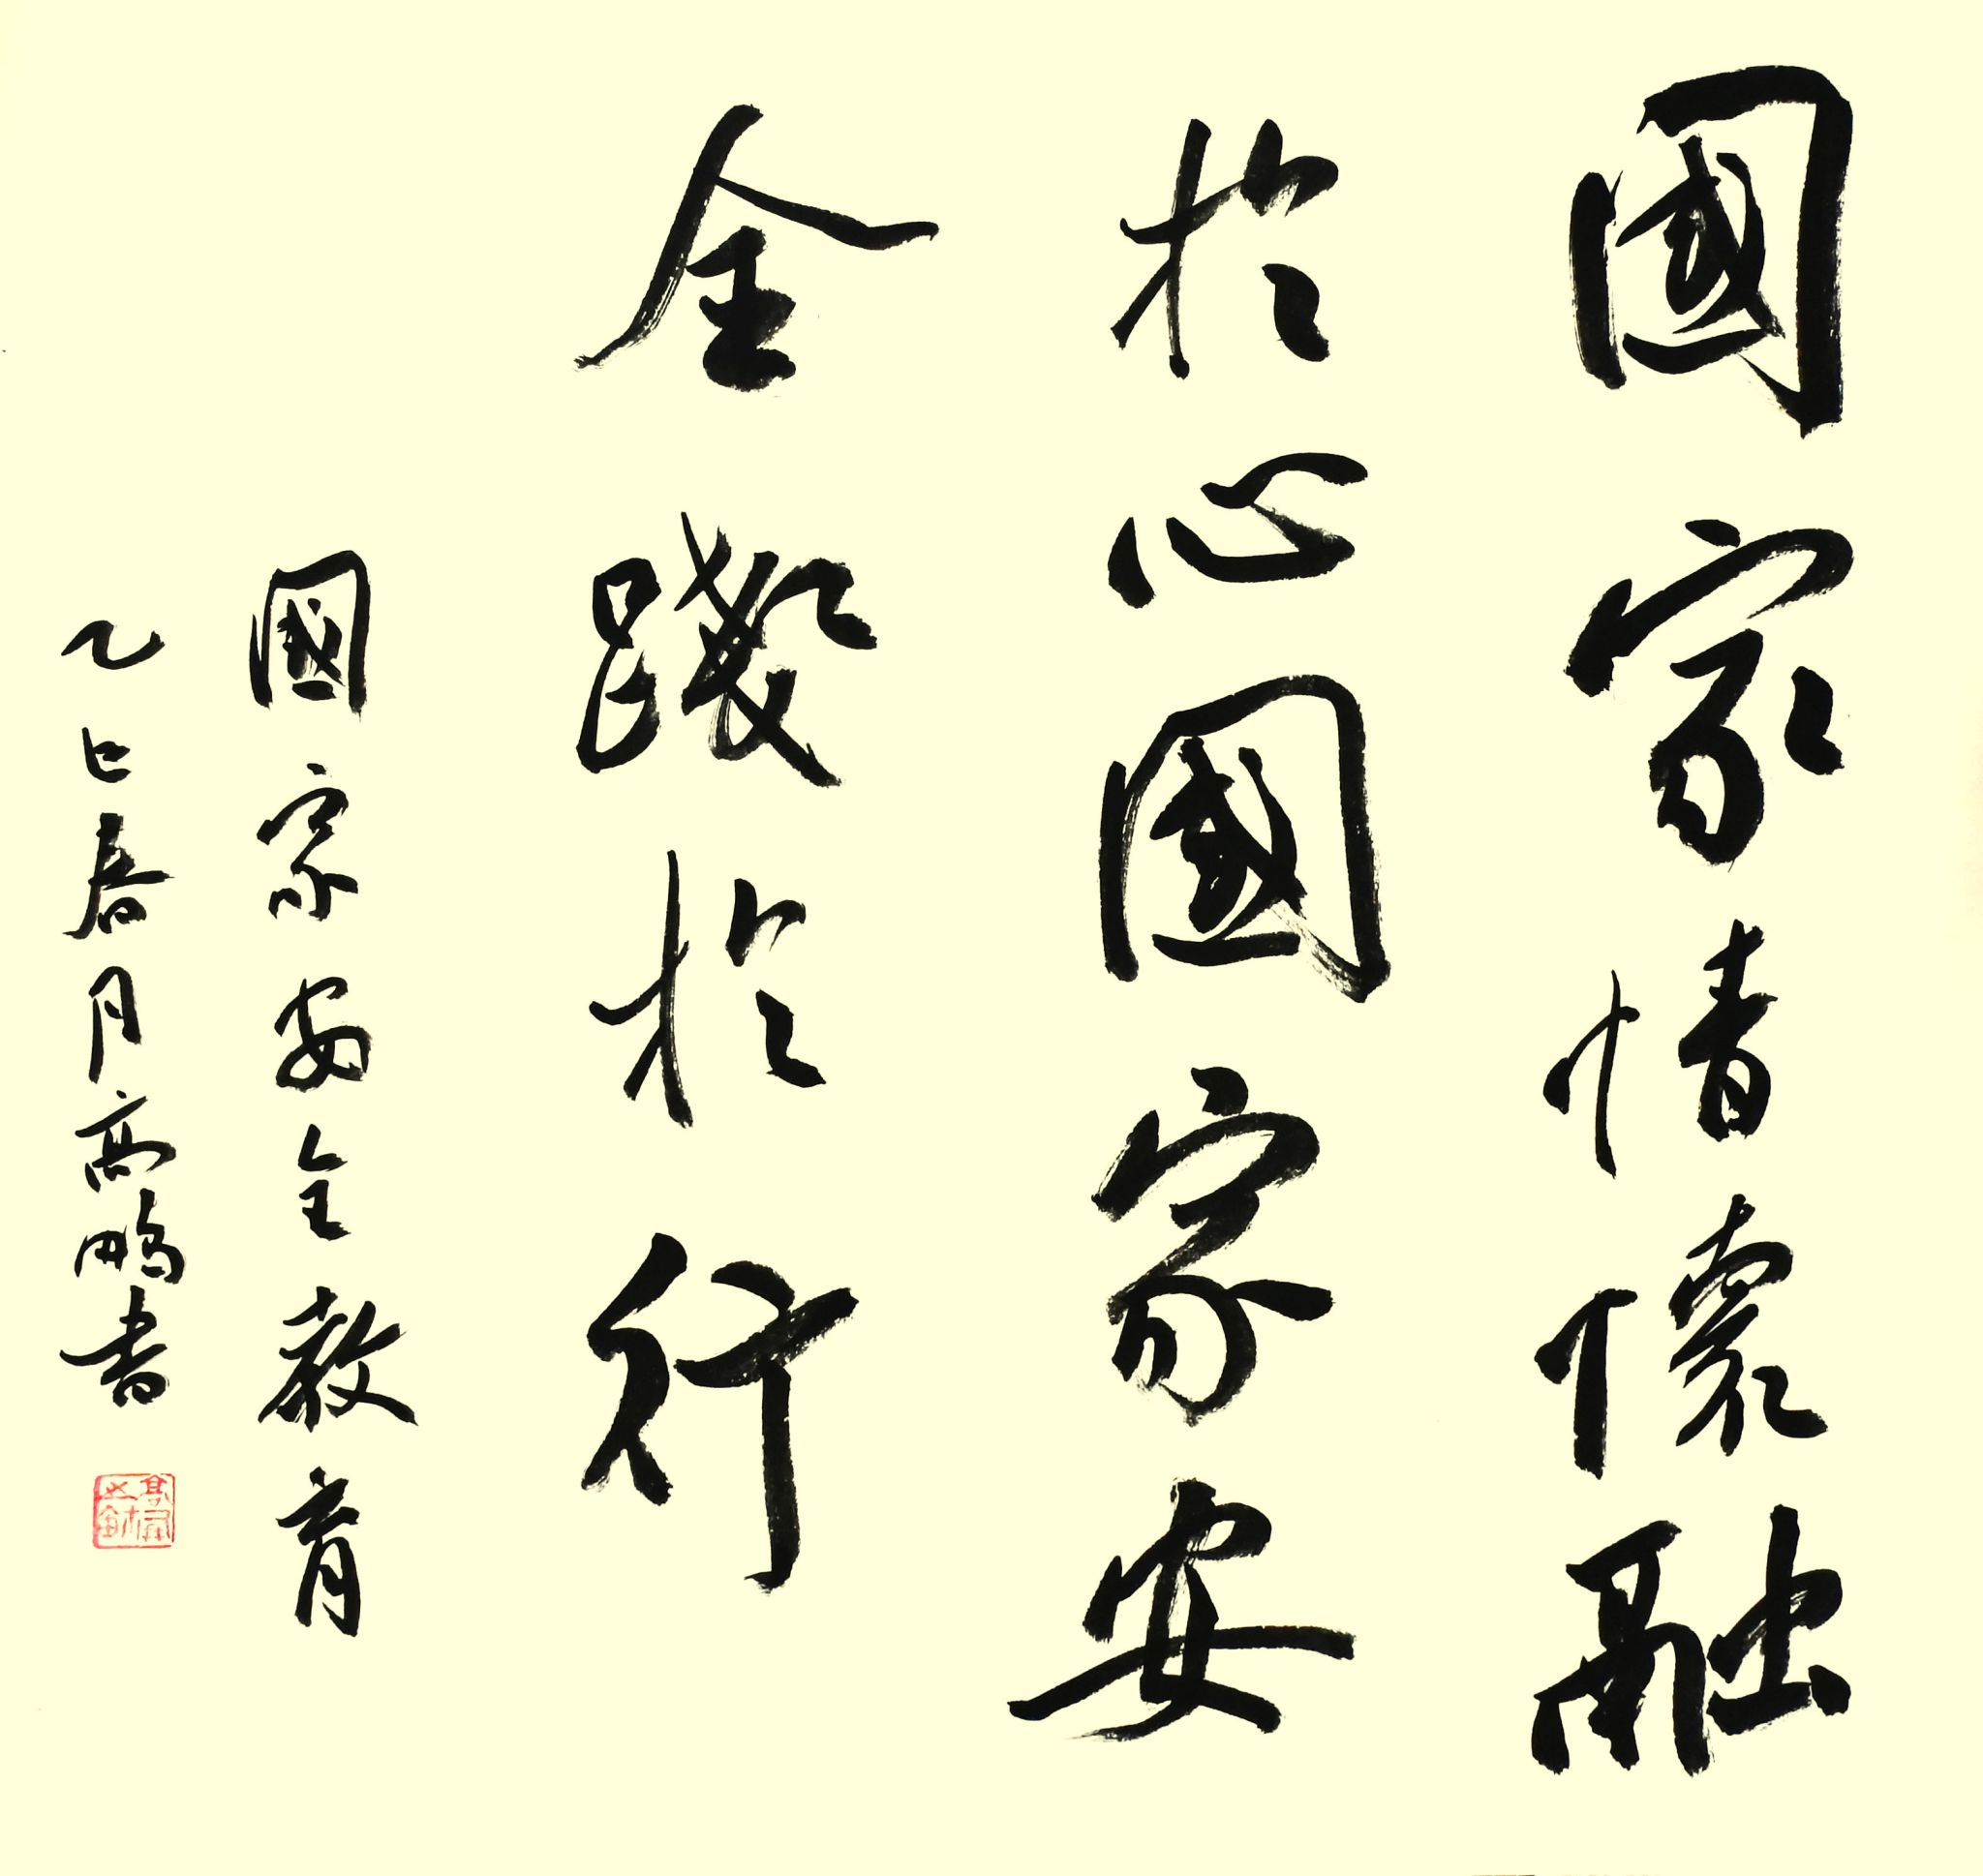 國家情懷融
於心國家安
全踐於行
國家安全教育
乙巳春月高鵬書